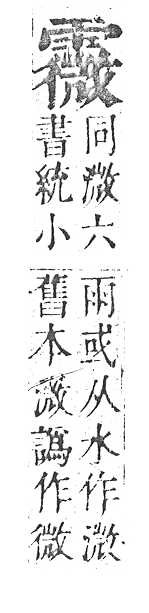 霺
同溦六
書統小
雨或从水作溦
舊本溦譌作微